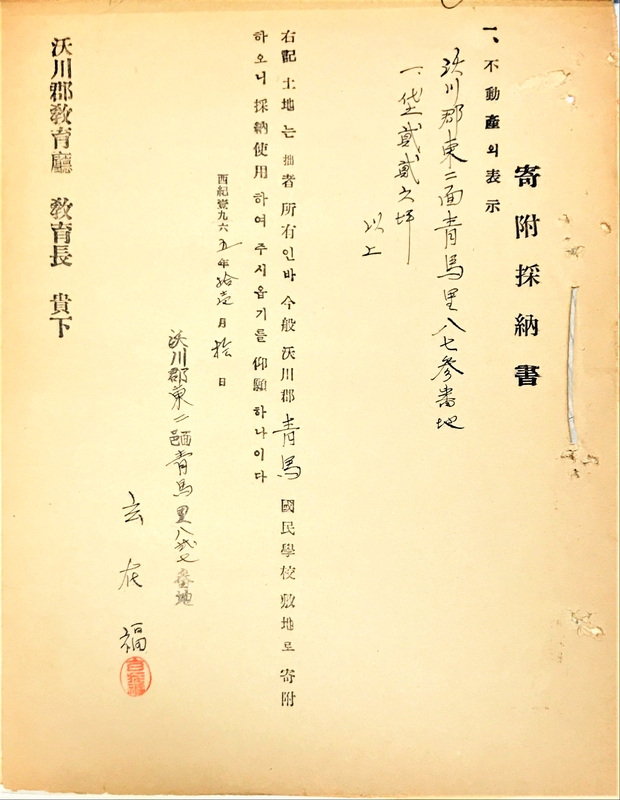 寄附採納書
一、不動產의表示
沃川郡東二面靑馬里八七參番地
一、垈貳貳六坪
以上
右記 土地는 拙者 所有인바 今般 沃川郡 靑馬 國民學校 敷地로 寄附
하오니 採納使用 하여 주시옵기를 仰願 하나이다
西紀壹九六五年拾壹月拾 日
沃川郡東二面靑馬里八貳七番地
玄在福
沃川郡敎育廳 敎育長 貴下